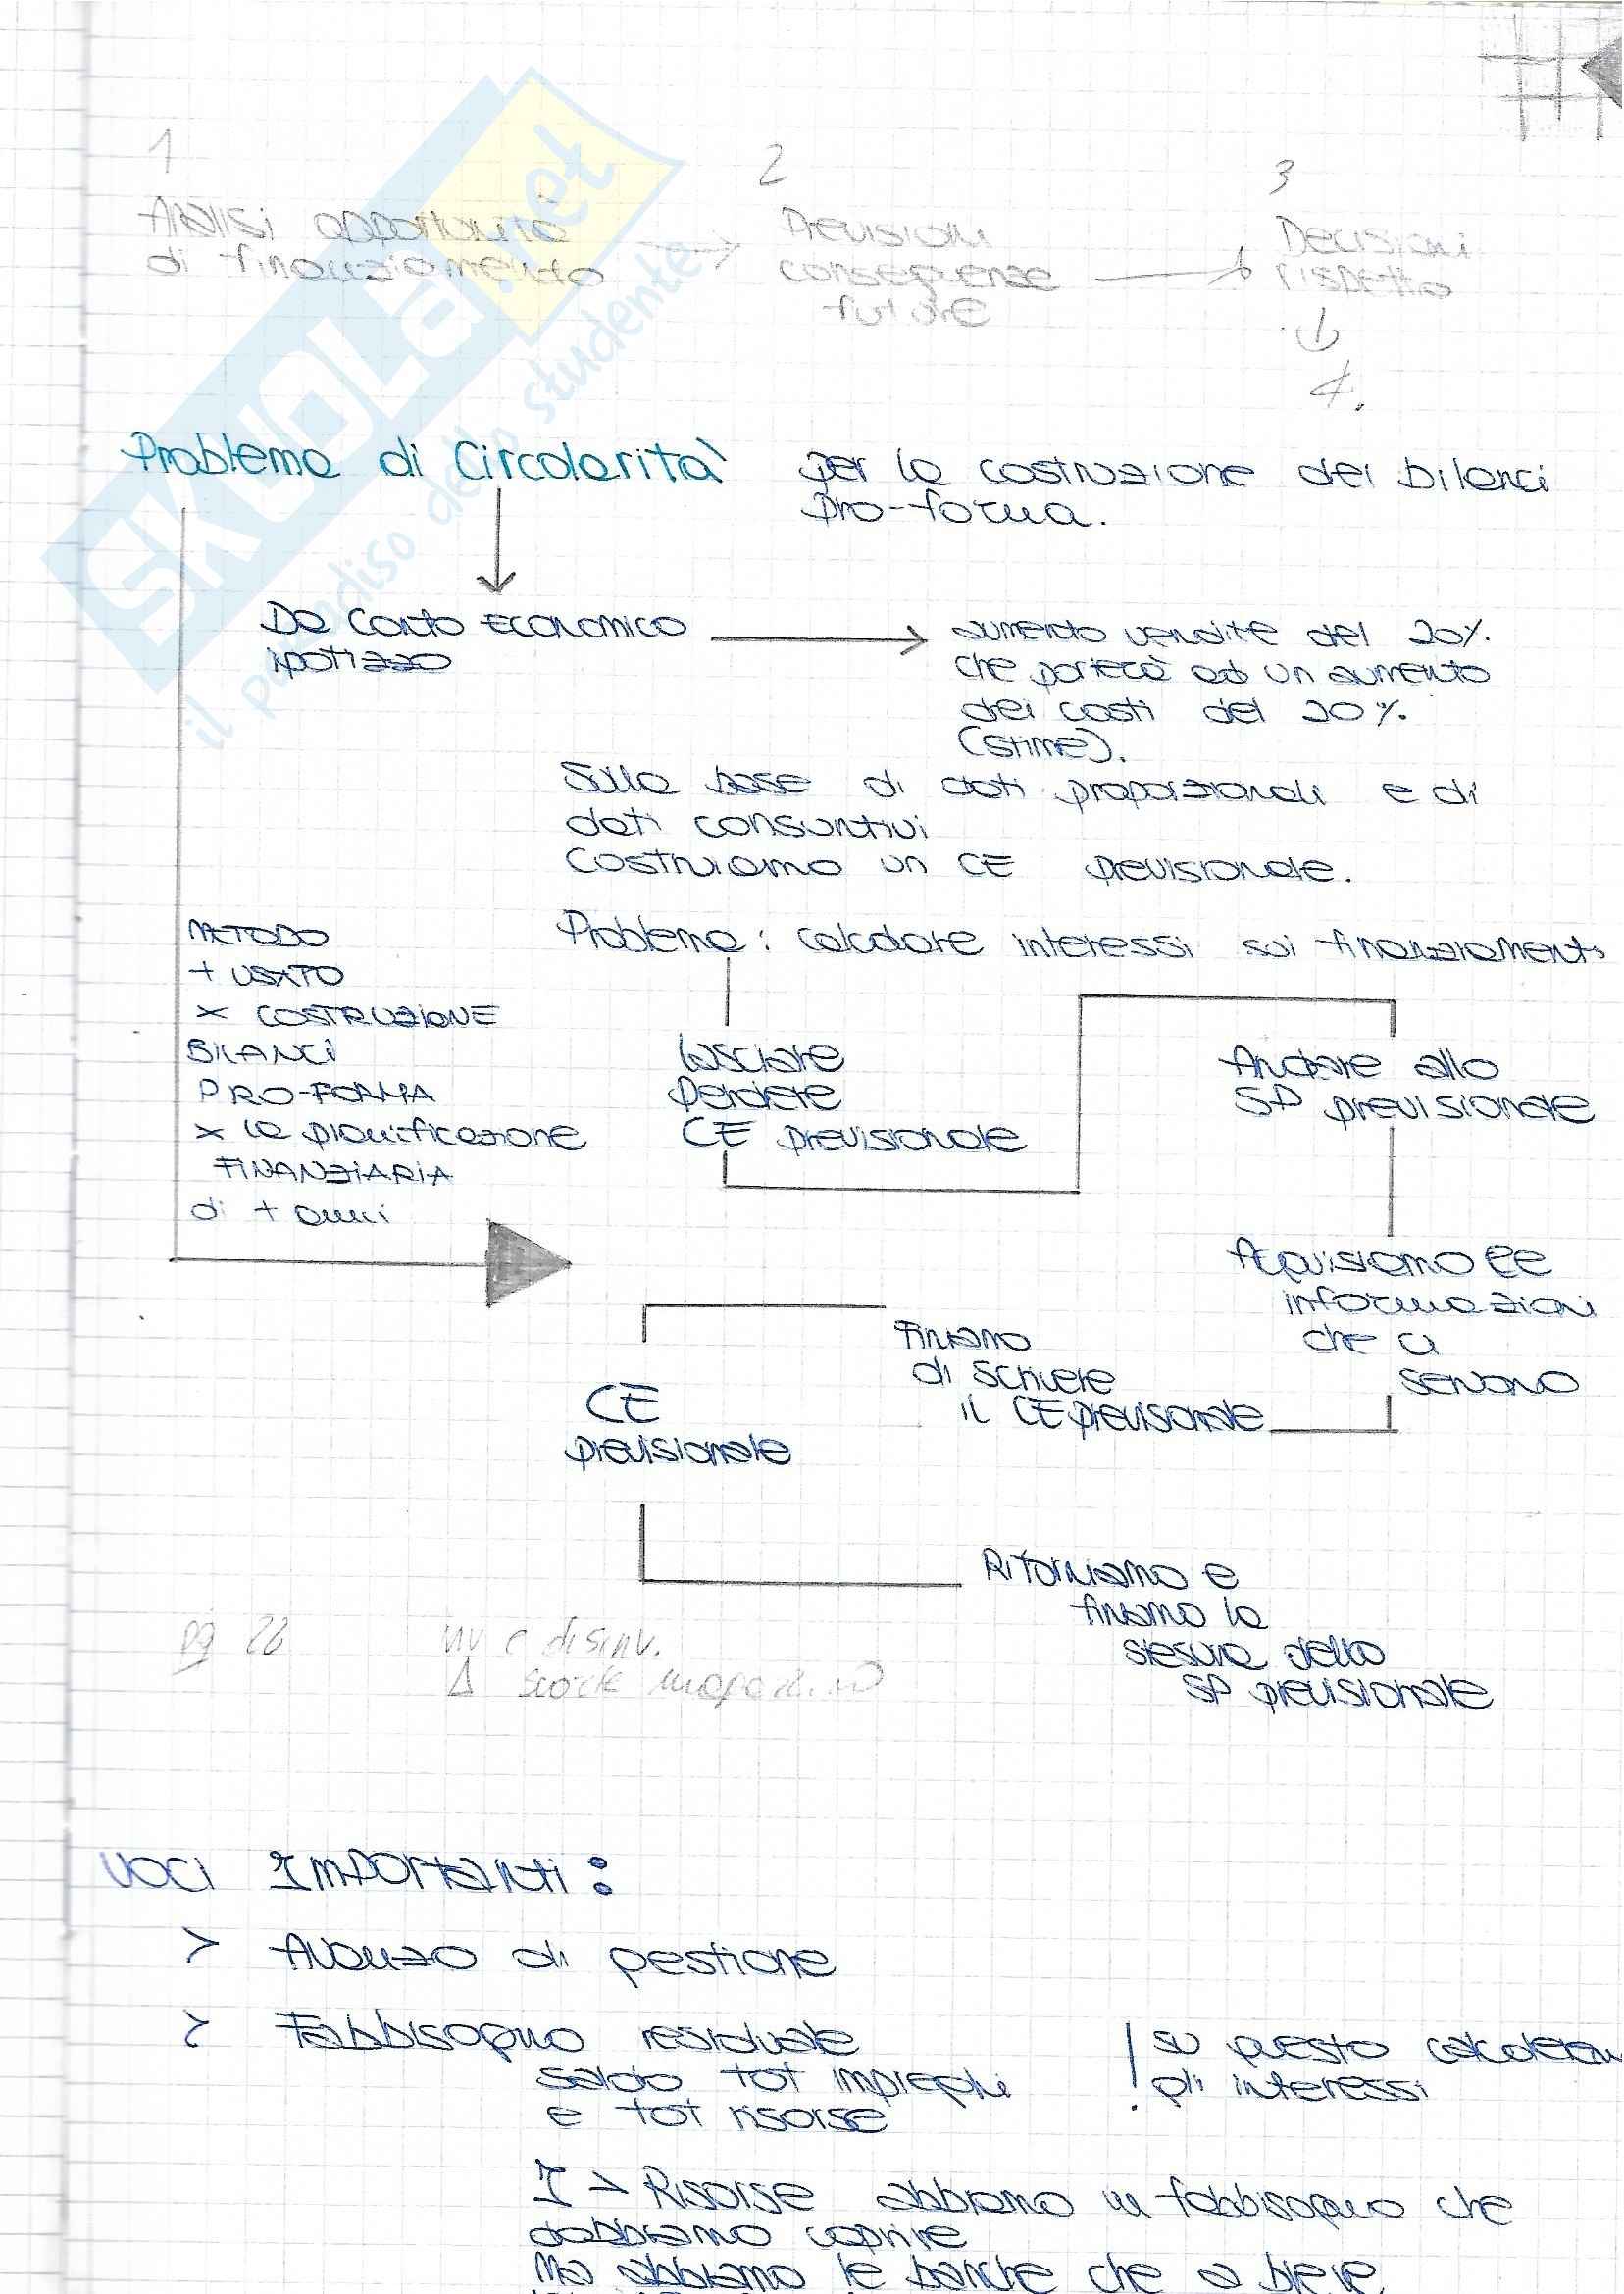 1
2
3
Analisi opportunità
di finanziamento
Previsioni
conseguenze
future
Decisioni
rispetto
4.
SKUOLA.net
il paradiso dello studente
Problema di Circolarità per la costruzione dei bilanci
pro-forma.
Da Conto Economico
ipotizzo
aumento vendite del 20%.
che porterà ad un aumento
dei costi del 20%.
(stime).
Sulla base di dati proporzionali e di
dati consuntivi
Costruiamo un CE previsionale.
Problema: calcolare interessi sui finanziamenti
METODO
+ USATO
x COSTRUZIONE
BILANCI
PRO-FORMA
x la pianificazione
FINANZIARIA
di + anni
lasciare
perdere
CE previsionale
Andare allo
SP previsionale
Acquisiamo le
informazioni
che ci
servono
Finiamo
di scrivere
il CE previsionale
CE
previsionale
Ritorniamo e
finiamo la
stesura dello
SP previsionale
pg 22
inv e disinv.
Δ scorte
VOCI IMPORTANTI:
> Avanzo di gestione
> Fabbisogno residuale
saldo tot impieghi
e tot risorse
! su questo
gli interessi
I > Risorse abbiamo un fabbisogno che
dobbiamo coprire
Ma abbiamo le banche che a breve